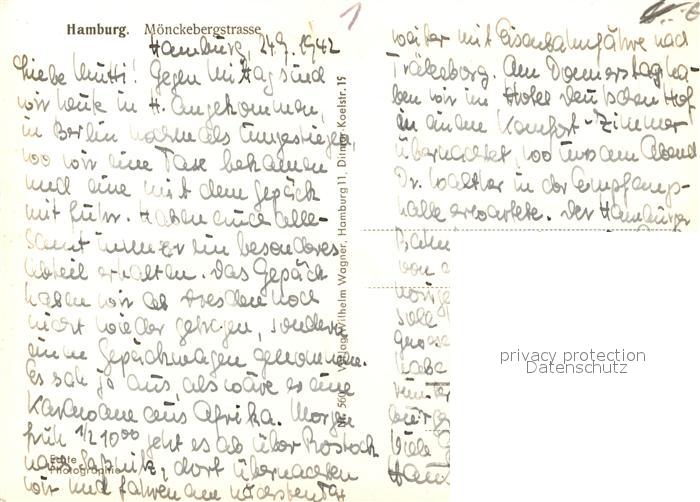 Hamburg. Mönckebergstrasse
Hamburg, 24.9.1942
Liebe Mutti! Gegen Mittag sind
wir heute in H. angekommen,
in Berlin nochmals umgestiegen,
wo wir eine Taxe bekamen
und eine mit dem Gepäck
mit fuhr. Haben auch alle-
samt immer ein besonderes
Abteil erhalten. Das Gepäck
haben wir ab Dresden noch
nicht wieder getragen, sondern
immer Gepäckwagen genommen.
Es sah ja aus, als wäre es eine
Karawane aus Afrika. Morgen
früh 1/2 10 00 geht es ab über Rostock
nach Saßnitz, dort übernachten
wir und fahren am nächsten Tag
Echte
Photographie
Nr. 560 Verlag Wilhelm Wagner, Hamburg 11, Ditmar-Koelstr. 15
1
weiter mit Eisenbahnfähre nach
Trälleborg. Am Donnerstag ha-
ben wir im Hotel deutschen Hof
in einem Komfort-Zimmer
übernachtet, wo uns am Abend
Dr. Walther in der Empfangs-
halle erwartete. Der Hamburger
von
habe
Viele
privacy protection
Datenschutz